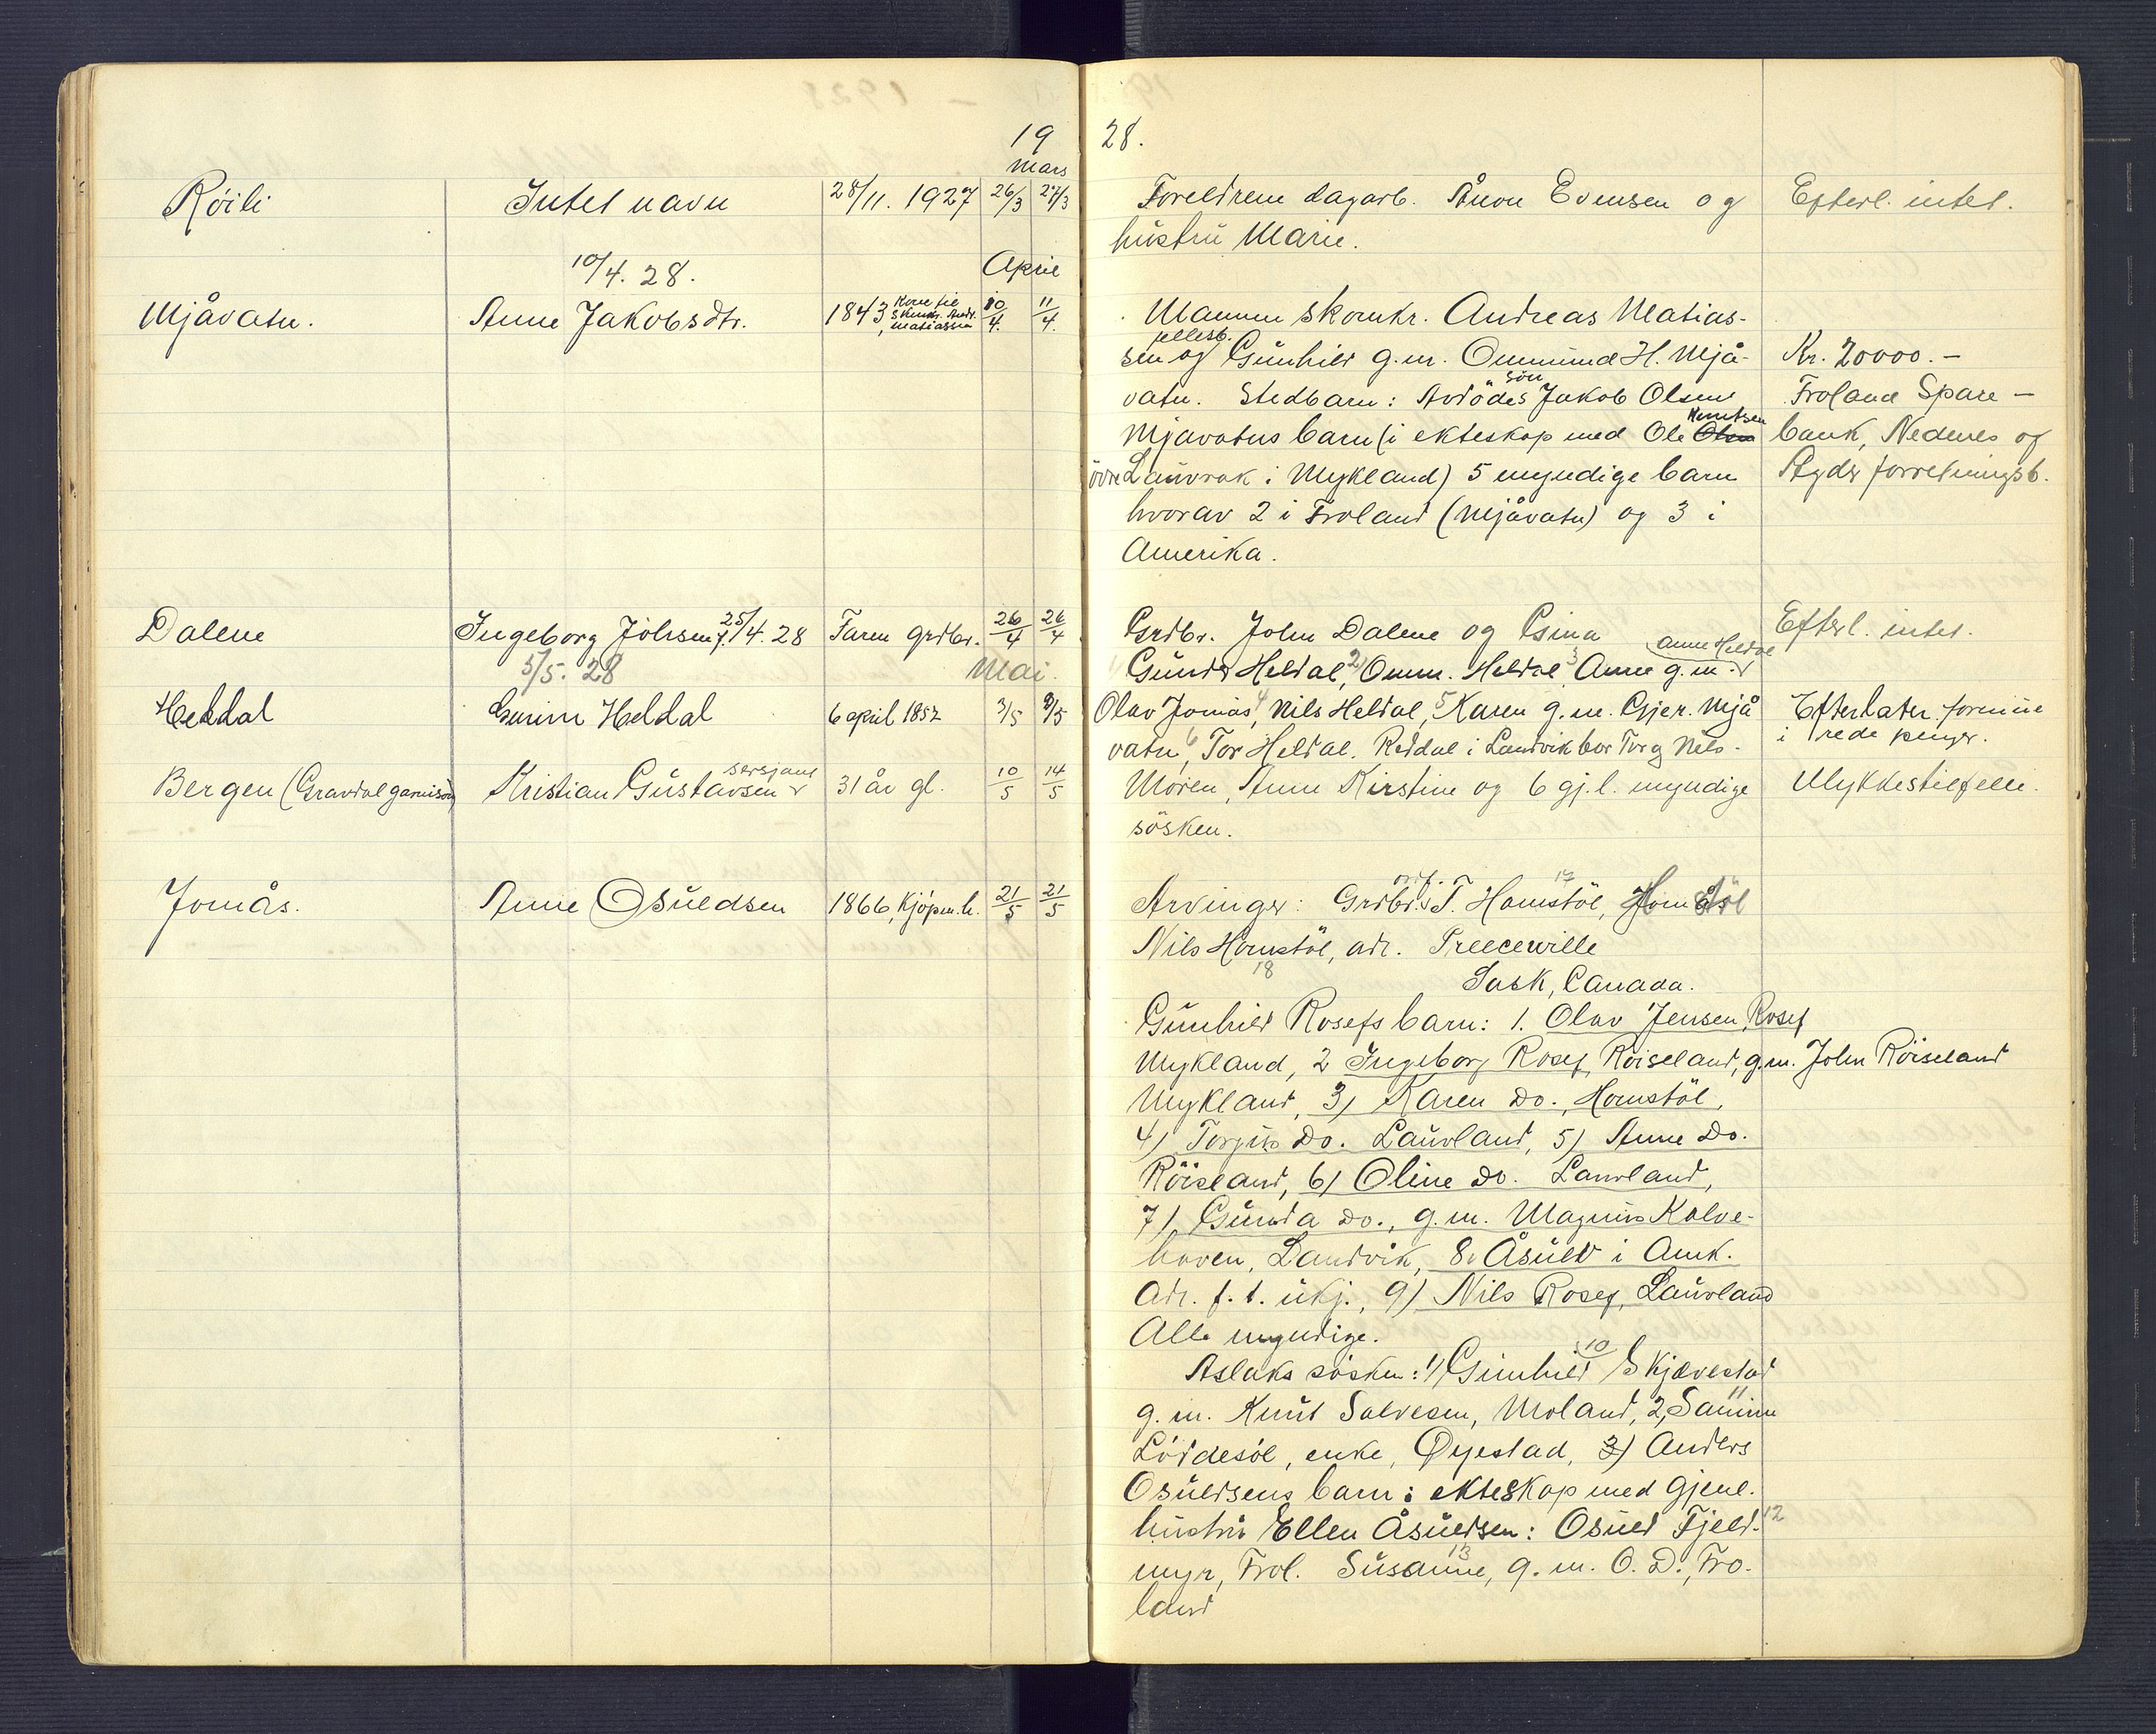 19 28.
mars
Röili Intet navn 28/11. 1927 26/3 27/3 Foreldrene dagarb. Ånon Evensen og Efterl. intet.
hustru Marie.
10/4. 28. April
Mjåvatn. Anne Jakobsdtr. 1843 Kone til skomkr. Andr. Matiassen 10/4. 11/4. Mannen skomkr. Andreas Matias-
sen og fellesb. Gunhild g.m. Ommund H. Mjå- Kr. 20000.-
vatn. Stedbarn: Avdödes sön Jakob Olsens Froland Spare-
Mjåvatns barn (i ekteskap med Ole Knutsen bank, Nedenes og
övre Lauvrak i Mykland) 5 myndige barn Agder forretningsb.
hvorav 2 i Froland (Mjåvatn) og 3 i
Amerika.
Dalene Ingeborg Johnsen 25/4. 28 Faren grdbr. 26/4 26/4 Grdbr. John Dalene og Gina Efterl. intet.
5/5. 28 Mai. Gunder Heldal, 2 Omm. Heldal 3 Anne g.m. Anne Heldal
Heddal Gunne Heldal 6 april 1852 3/5 9/5 Olav Jomås, 4 Nils Heldal, 5 Karen g.m. Gjer. Mjå Efterlater formue
vatn, 6 Tor Heldal. Reddal i Landvik bor Torg Nils- i rede penger.
Bergen (Gravdal garnison) Kristian Gustavsen sersjant 31 år gl. 10/5 14/5 Moren, Anne Kirstine og 6 gj.l. myndige Ulykkestilfelle.
sösken.
Jomås. Anne Osuldsen 1866, Kjöpm.h. 21/5 21/5 Arvinger: Grdbr. T. Homstöl, 17
Nils Homstöl, adr. Preeceville
18 Sask, Canada.
Gunhild Rosefs barn: 1. Olav Jensen Rosef
Mykland, 2 Ingeborg Rosef, Röiseland, g.m. John Röiseland
Mykland, 3) Karen Do., Homstöl,
4) Torjus Do. Lauvland, 5) Anne Do.
Röiseland, 6) Oline Do. Lauvland,
7) Gunda Do., g.m. Magnus Kalve-
haven, Landvik, 8. Åsuld i Amk.
Adr. f.t. ukj., 9) Nils Rosef, Lauvland
Alle myndige.
Aslaks sösken: 1) Gunhild 10 Skjævestad
g.m. Knut Salvesen, Moland, 2, 11
Löddesöl, enke, Öyestad, 3) Anders
Osuldsens barn i ekteskap med gjenl.
hustru Ellen Åsuldsen: Osuld Fjeld- 12
myr, Frol. Susanne, 13 g.m. O.D., Fro-
land